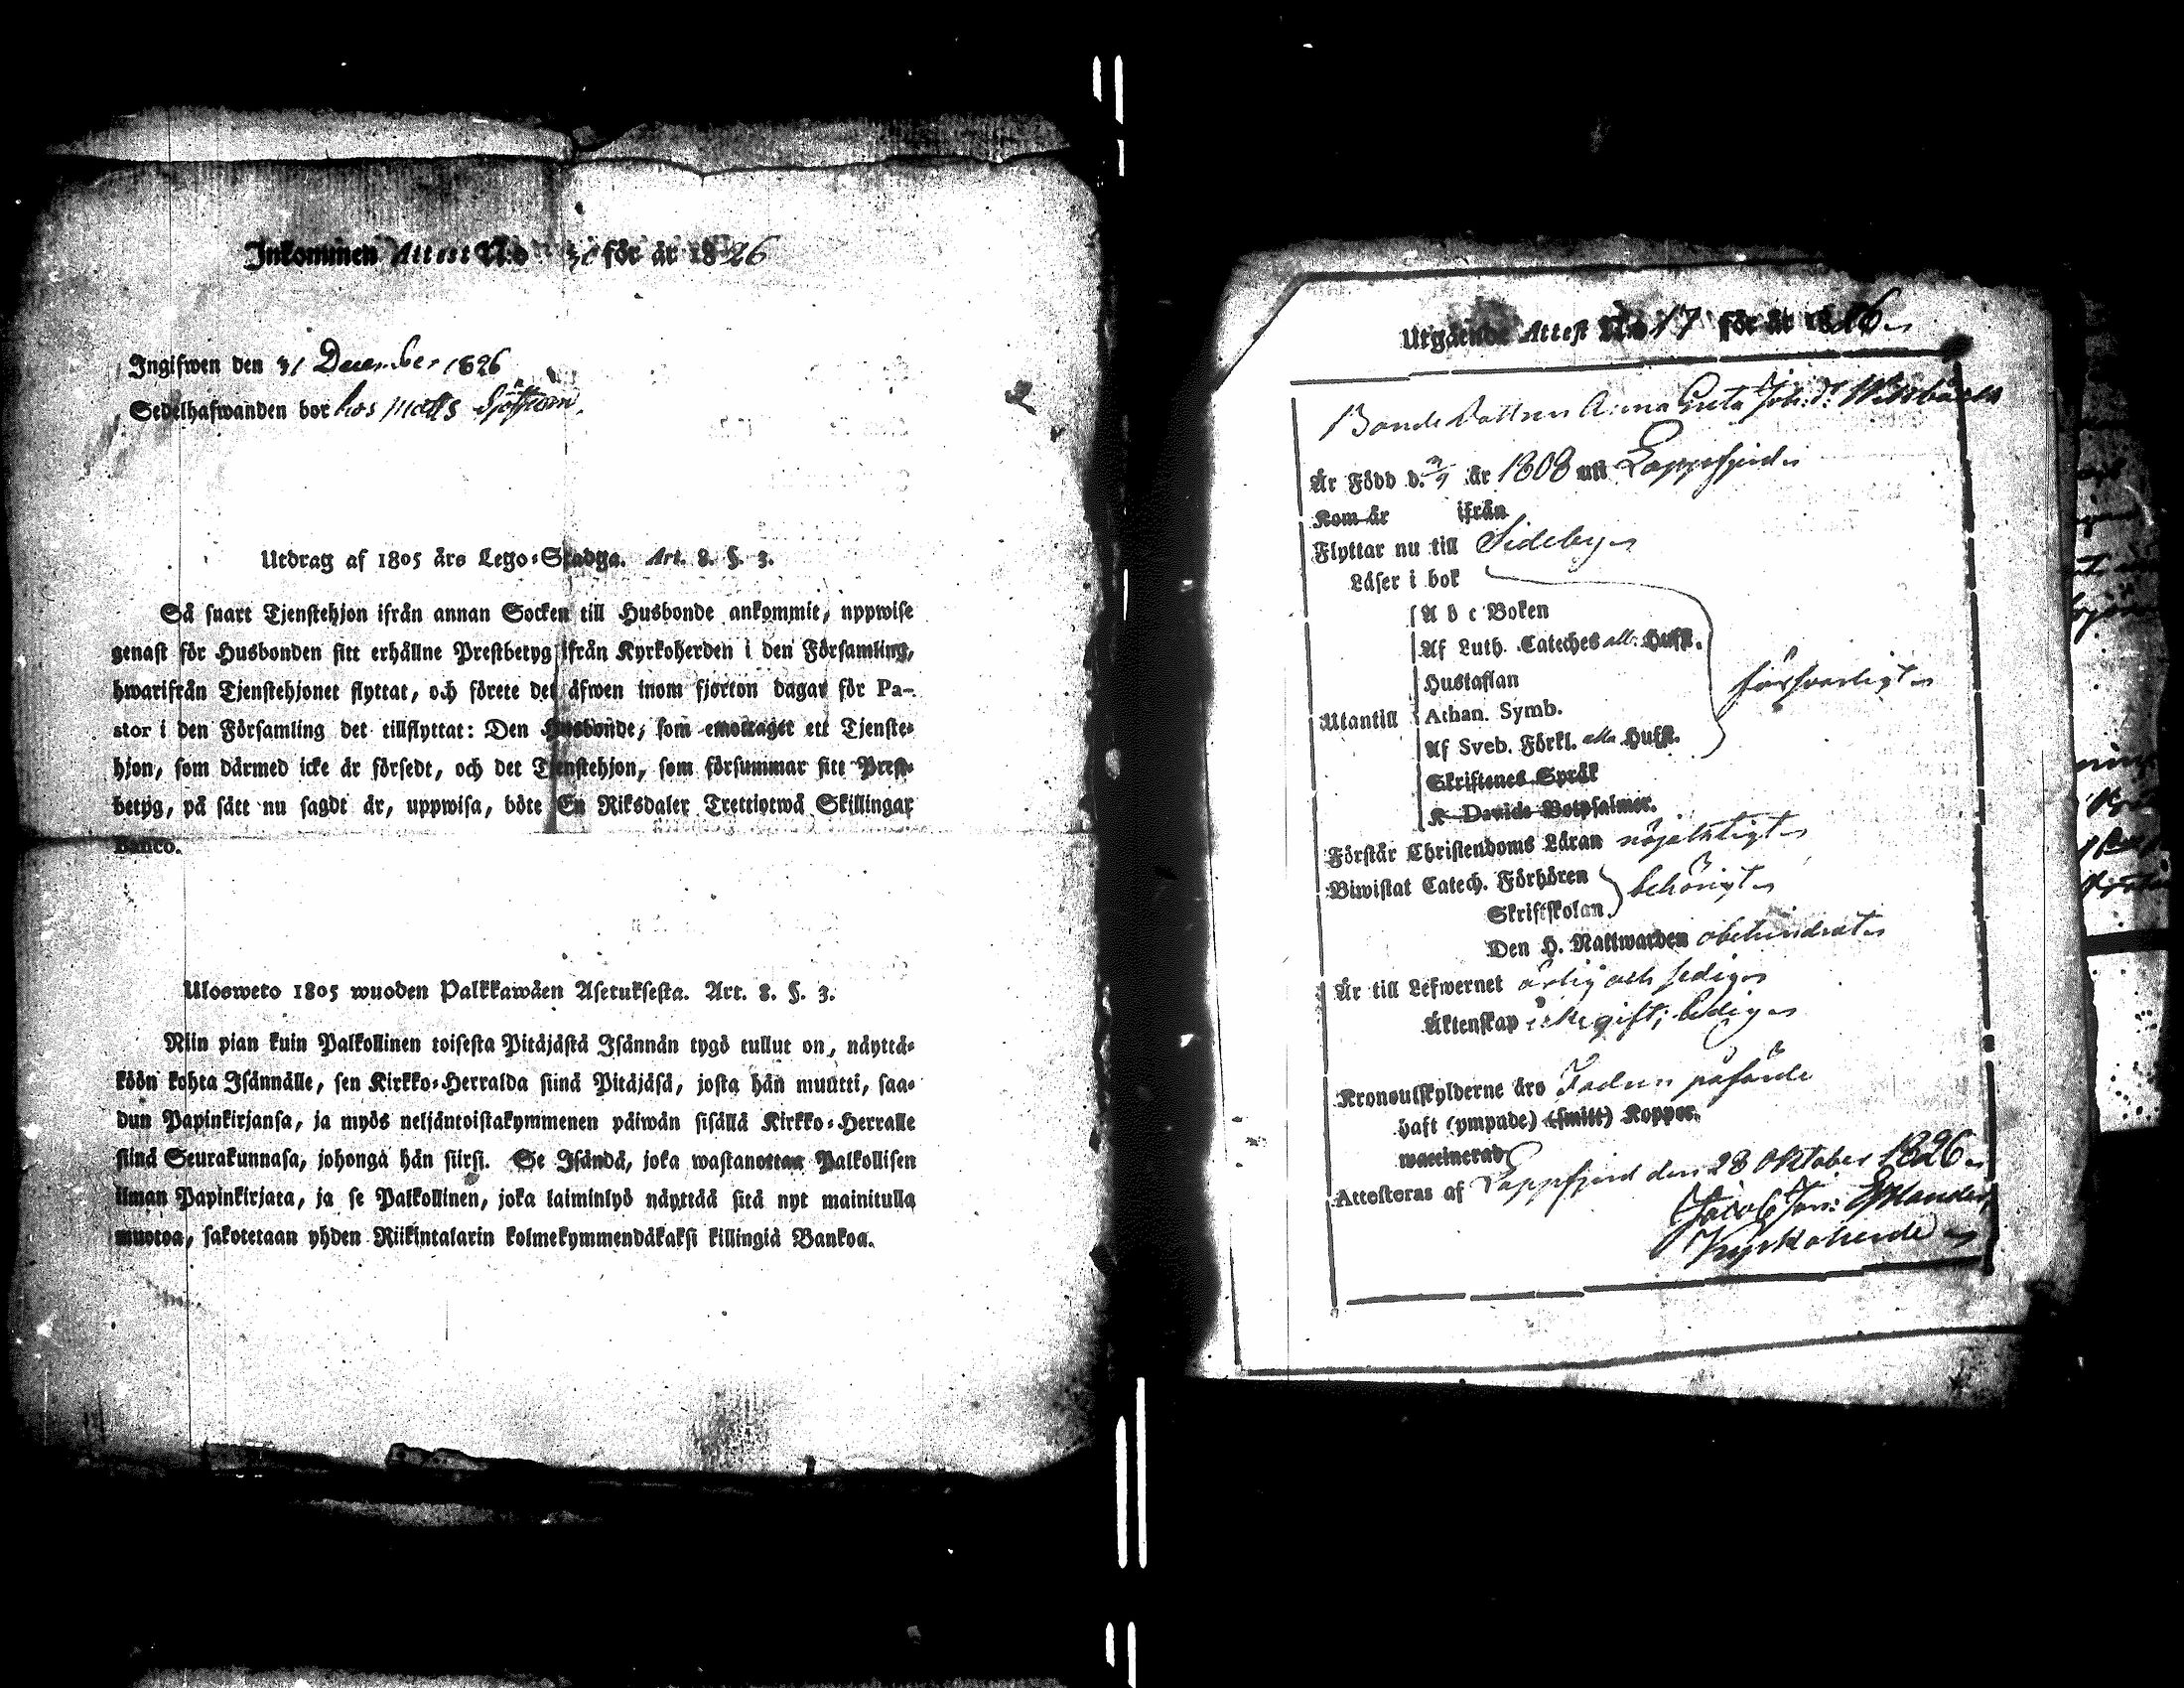 Inkommen Attest N:o 30 för år 1826
Ingifwen den 31 December 1826
Sedelhafwanden bor hos Matts
Utdrag af 1805 års Lego-Stadga. Art. 8. §. 3.
Så snart Tjenstehjon ifrån annan Socken till Husbonde ankommit, uppwise
genast för Husbonden sitt erhållne Prestbetyg ifrån Kyrkoherden i den Församling,
hwarifrån Tjenstehjonet flyttat, och förete det äfwen inom fjorton dagar för Pa-
stor i den Församling det tillflyttat: Den Husbonde, som emottager ett Tjenste-
hjon, som därmed icke är försedt, och det Tjenstehjon, som försummar sitt Prest-
betyg, på sätt nu sagdt är, uppwisa, böte En Riksdaler Trettiotwå Skillingar
Banco.
Ulosweto 1805 wuoden Palkkawäen Asetuksesta. Art. 8. §. 3.
Niin pian kuin Palkollinen toisesta Pitäjästä Isännän tygö tullut on, näyttä-
köön kohta Isännälle, sen Kirkko-Herralda siinä Pitäjäsä, josta hän muutti, saa-
dun Papinkirjansa, ja myös neljäntoistakymmenen päiwän sisällä Kirkko-Herralle
siinä Seurakunnasa, johonga hän siirsi. Se Isändä, joka wastanottaa Palkollisen
ilman Papinkirjata, ja se Palkollinen, joka laiminlyö näyttää sitä nyt mainitulla
muotoa, sakotetaan yhden Riikintalarin kolmekymmendäkaksi killingiä Bankoa.
Utgående Attest N:o 17 för år 1826
Bonde Dottren Anna Greta Joh: d:r
Är Född d. år 1808 uti Lappfjerd
Kom år ifrån
Flyttar nu till Sideby
Läser i bok
Utantill
A b c Boken
Af Luth. Cateches all. Hufst.
Hustaflan
Athan. Symb.
Af Sveb. Förkl. alla Hufst.
försvarligt
Skriftenes Språk
K Davids Botpsalmer.
Förstår Christendoms Läran nöjaktigt
Biwistat Catech. Förhören
Skriftskolan
behörigt
Den H. Nattwarden obehindrat
Är till Lefwernet ärlig och sedig
Äktenskap icke gift; ledig
Kronoutskylderne äro Fadren påförde
haft (ympade) (smitt) Koppor.
waccinerad
Attesteras af Lappfjerd den 28 Oktober 1826
Jacob Jon: Estlander,
Kyrkoherde